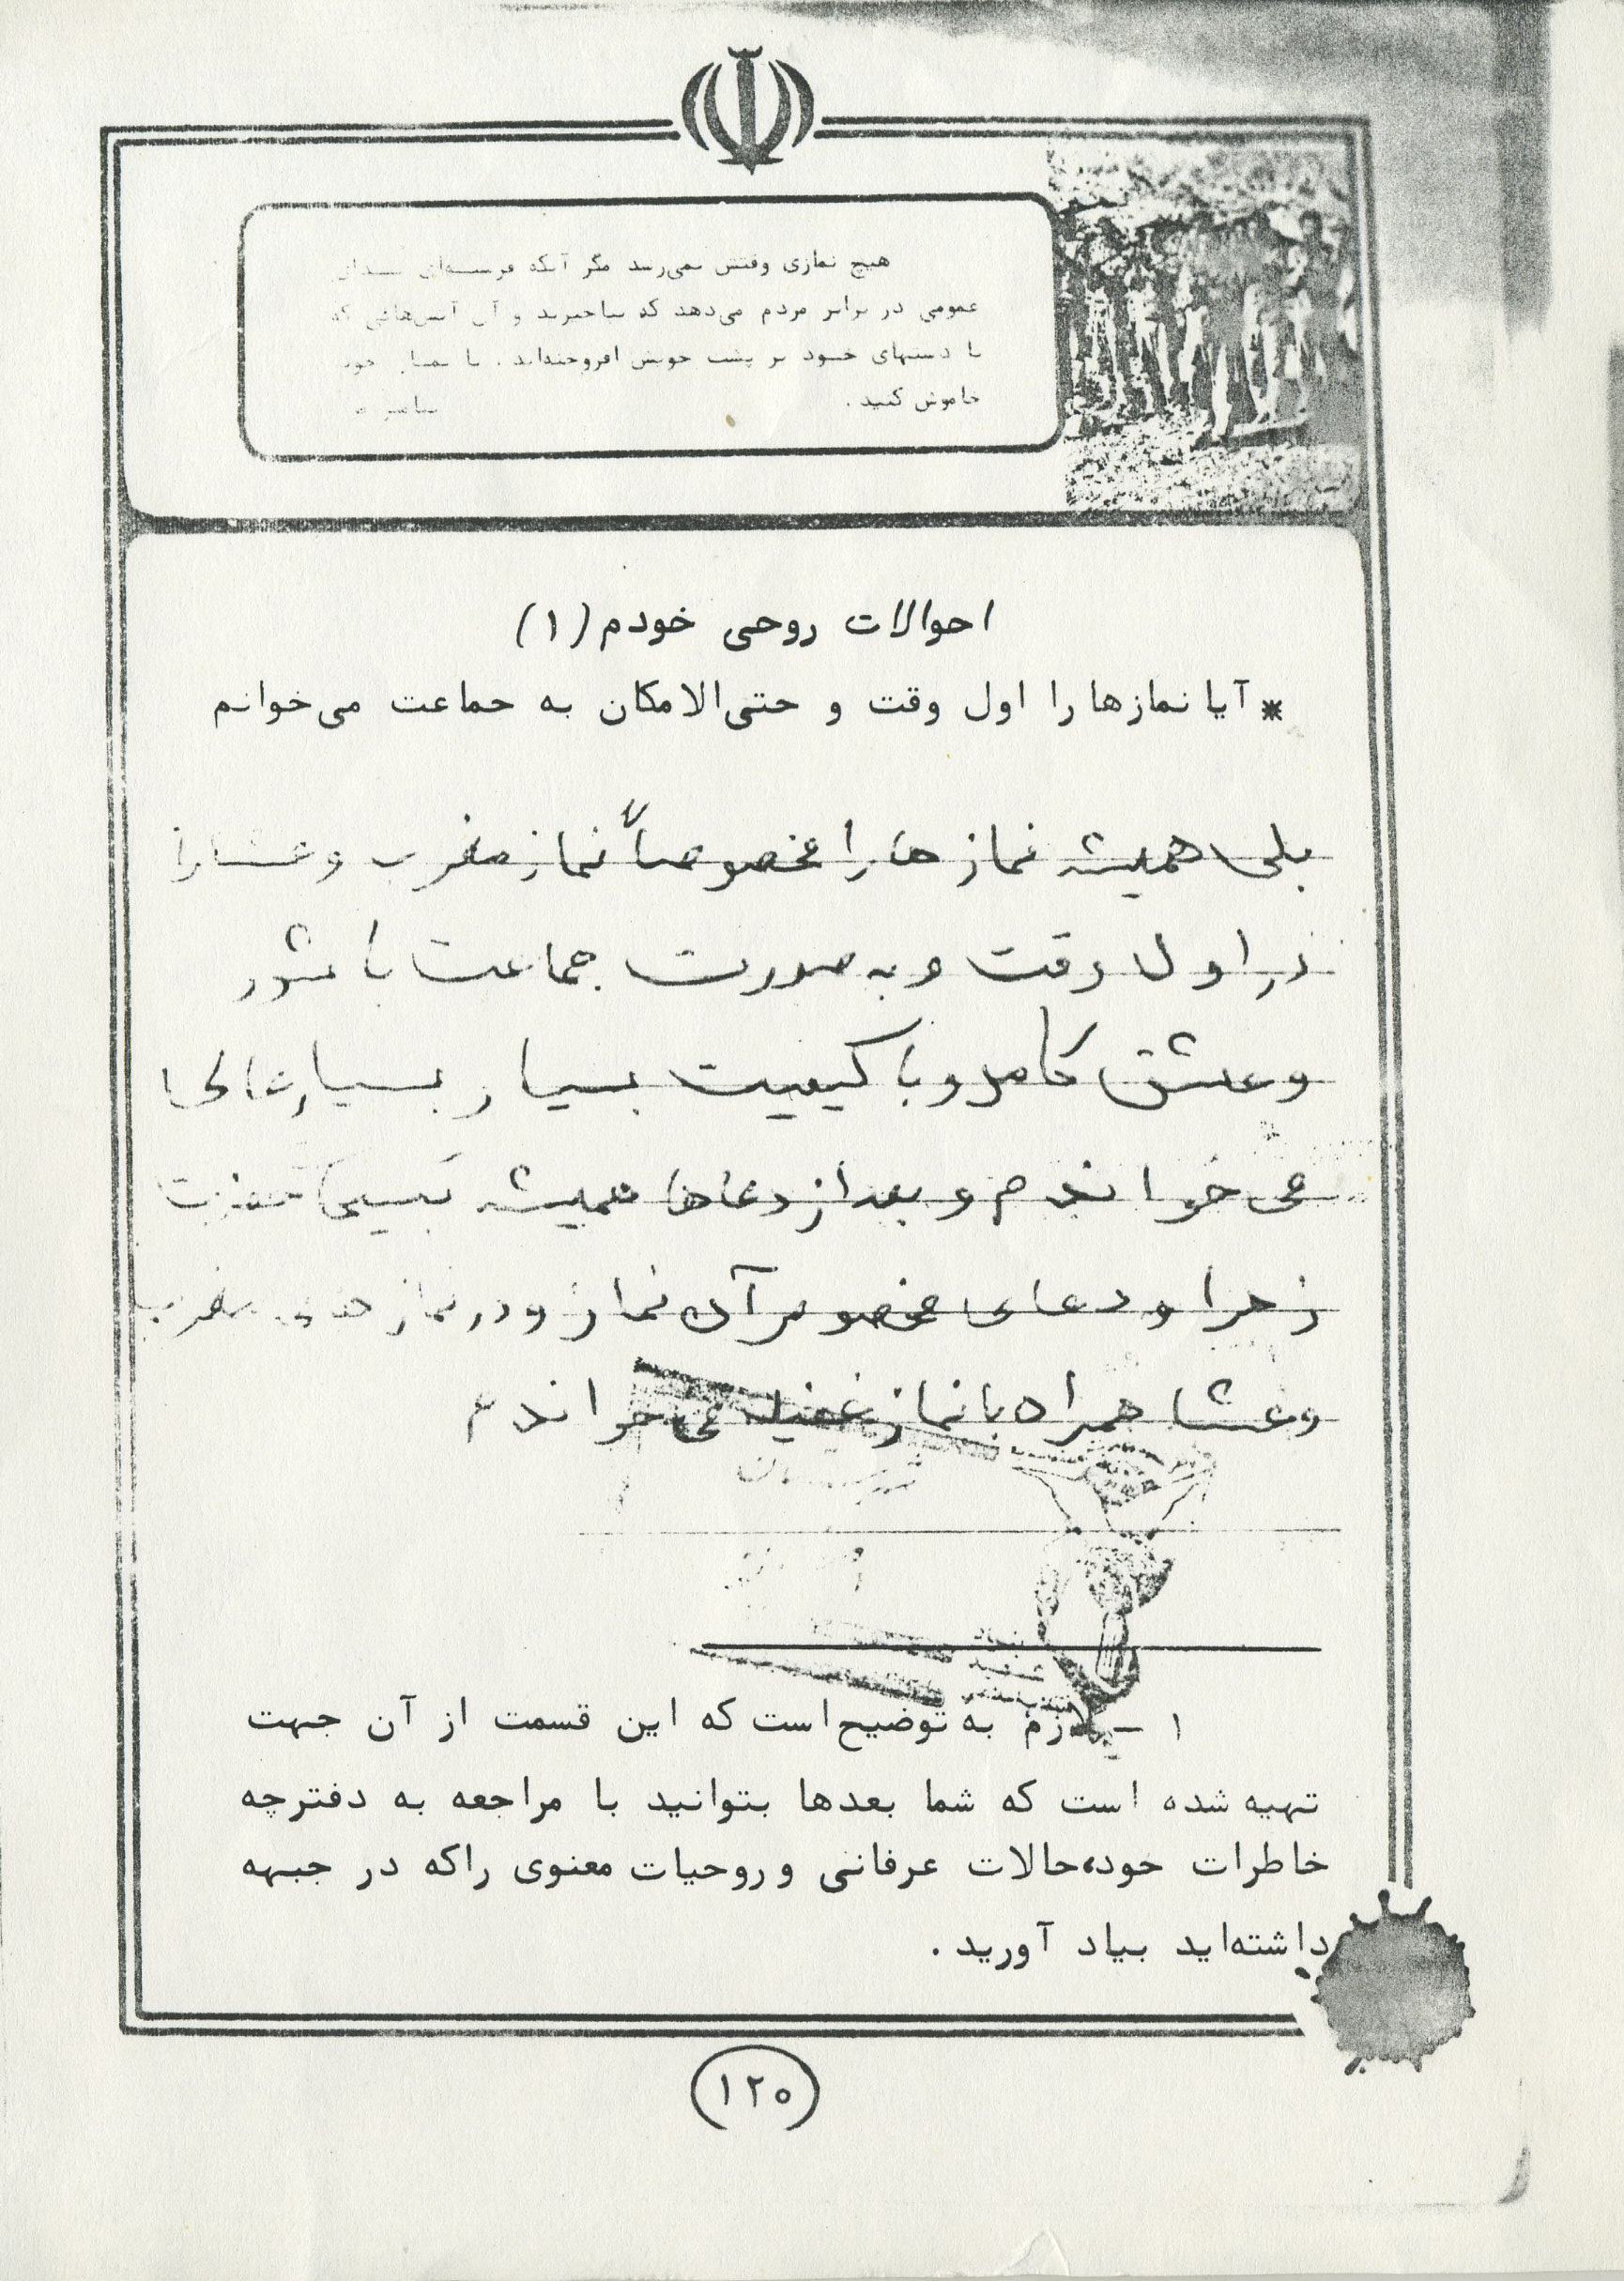 هیچ نمازی وقتش نمی‌رسد مگر آنکه
عمومی در برابر مردم می‌دهد که بپاخیزید و آن آتش‌هائی که
با دستهای خود بر پشت خویش افروخته‌اید، با نماز خود
خاموش کنید.
احوالات روحی خودم (۱)
* آیا نمازها را اول وقت و حتی‌الامکان به جماعت می‌خوانم
بلی همیشه نماز ها را مخصوصاً نماز مغرب و عشا را
در اول وقت و به صورت جماعت با شور
و عشق کامل و با کیفیت بسیار بسیار عالی
می خواندم و بعد از دعاها همیشه تسبیحات حضرت
زهرا و دعای مخصوص آن نماز و در نماز های مغرب
و عشا همراه با نماز غفیله می خواندم
بنیاد
شهید
۱ - لازم به توضیح است که این قسمت از آن جهت
تهیه شده است که شما بعدها بتوانید با مراجعه به دفترچه
خاطرات خود، حالات عرفانی و روحیات معنوی را که در جبهه
داشته‌اید بیاد آورید.
۱۲۰